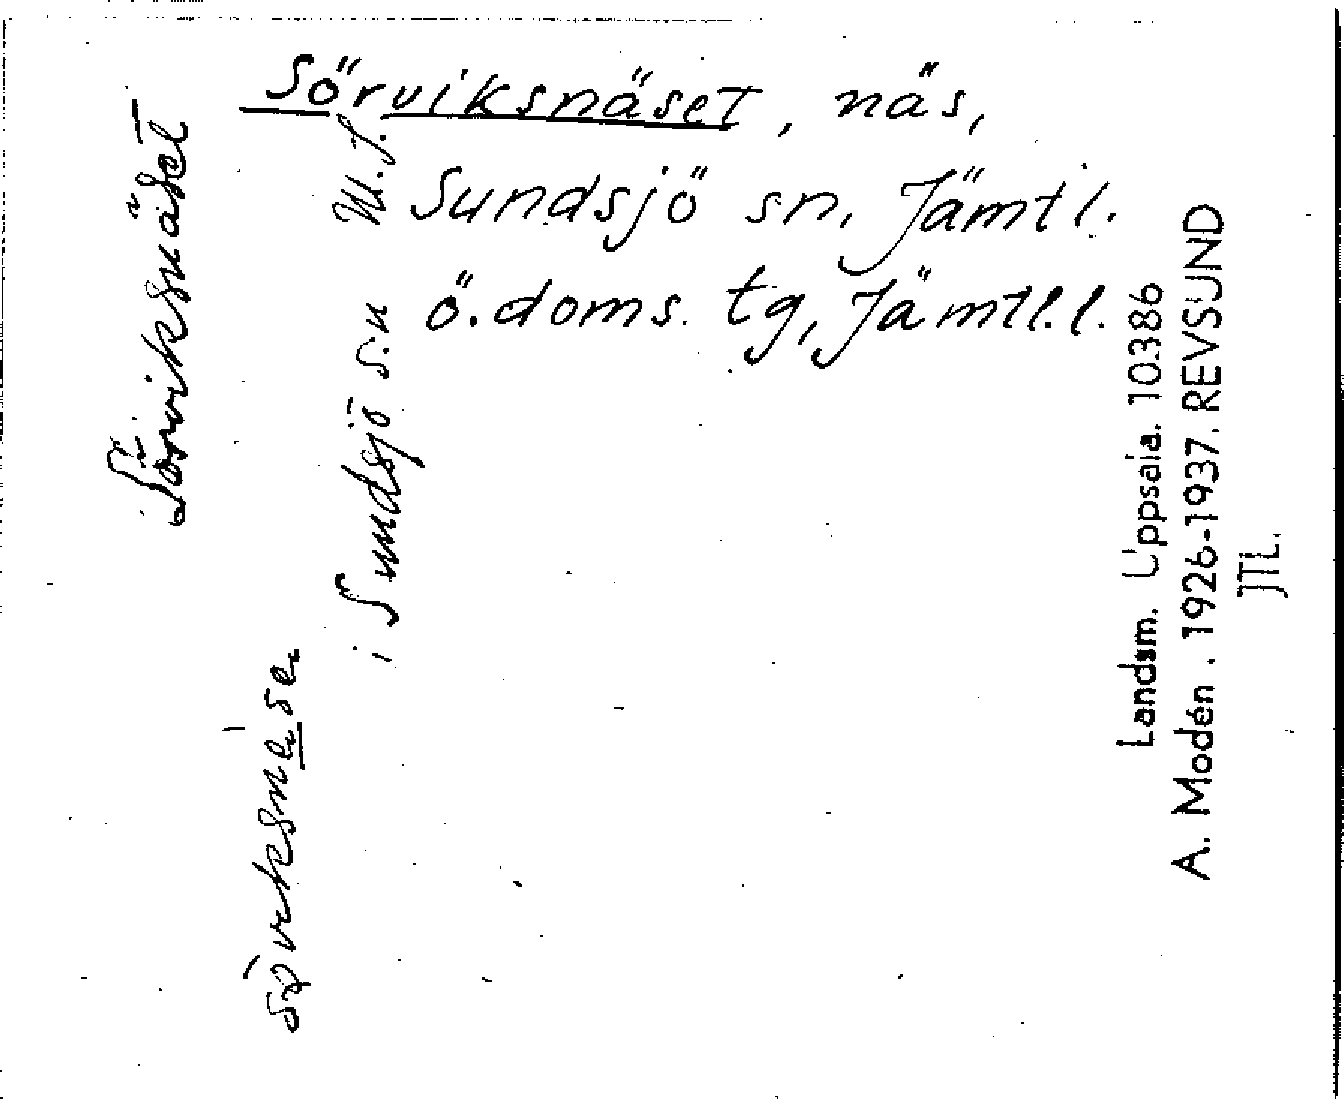 Sörviksnäset, näs,
Sundsjö sn. Jämtl.
ö. doms. tg, Jämtl. l.
Sörviksnäset
i Sundsjö s:n
Landsm. Uppsala. 10386
A. Modén. 1926-1937. REVSUND
JTL.